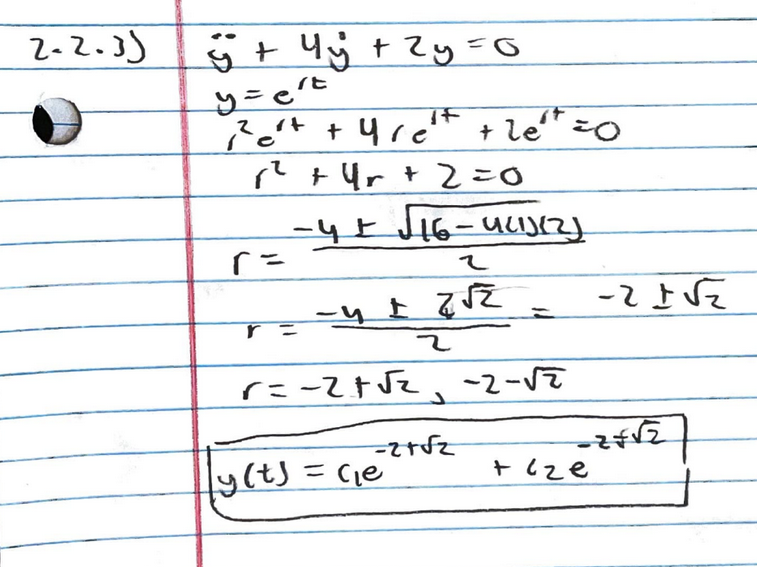 2.2.3) ÿ + 4ẏ + 2y = 0
y = e^{rt}
r²e^{rt} + 4re^{rt} + 2e^{rt} = 0
r² + 4r + 2 = 0
r = \frac{-4 ± √(16 - 4(1)(2))}{2}
r = \frac{-4 ± 2√2}{2} = -2 ± √2
r = -2+√2, -2-√2
y(t) = c₁e^{-2+√2} + c₂e^{-2+√2}